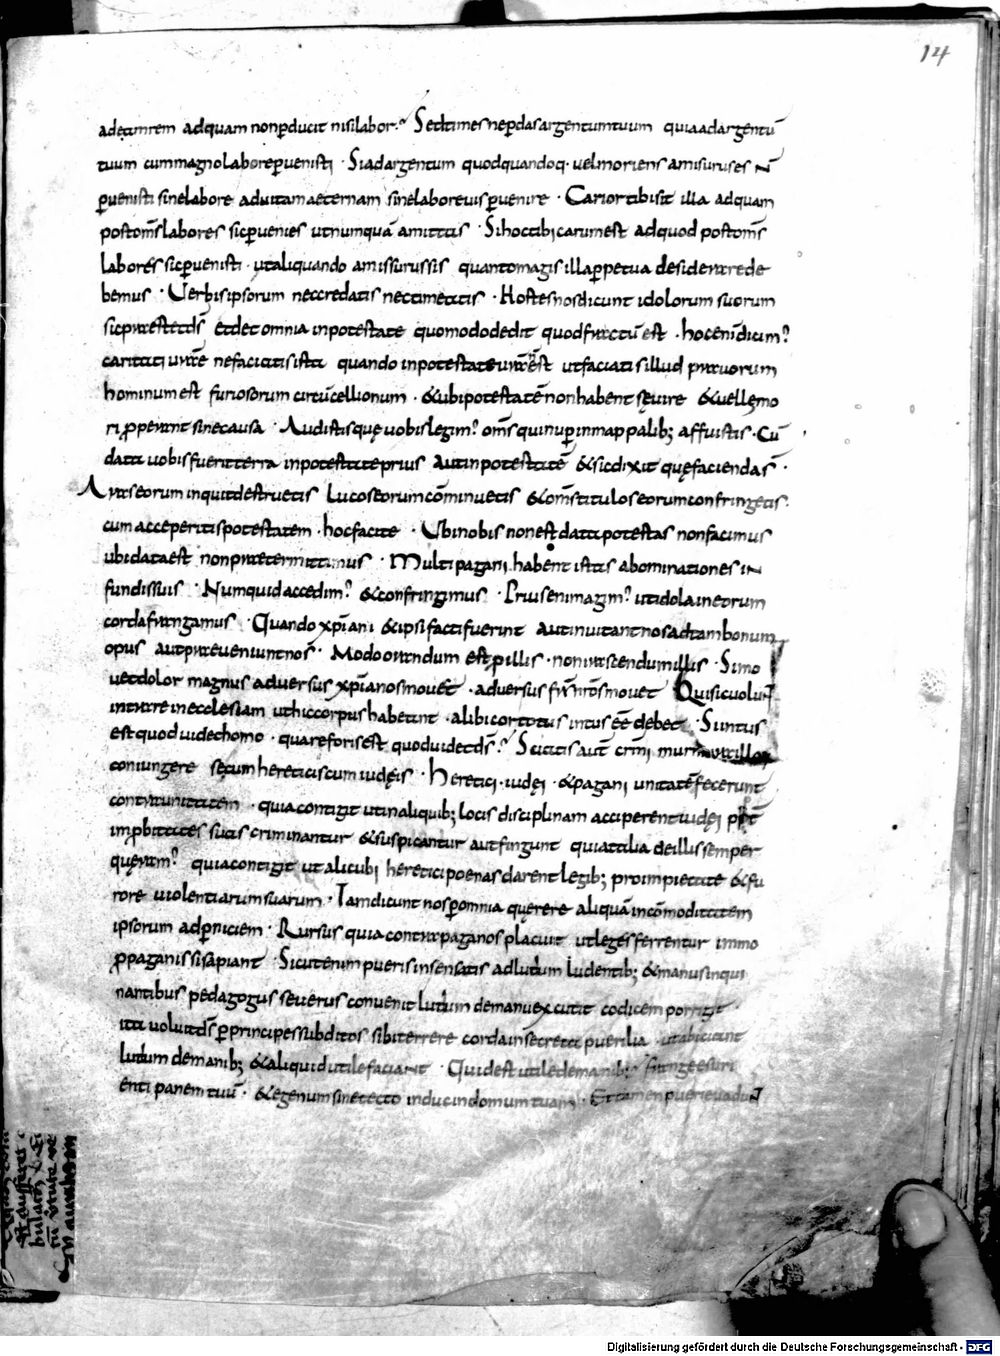 14
ad eternrem adquam nonperducit nisilabor? Sedtimes neperdas argentumtuum quiaadargentū
tuum cummagnolaborepervenisti · Siadargentum quodquandoq· uelmoriens amisuruses N̄
ꝑuenisti sinelabore aduitamaeternam sinelaboreuisꝑuenire · Cariortibisit illa adquam
postom̄s labores sicꝑuenies utnumquā amittas · Sihoctibicarumest adquod postom̄s
labores sicꝑuenisti · utaliquando amissurussis quantomagis illaꝑpetua desiderarede
bemus · Uerbisipsorum neccredatis nectimeatis · Hostesnosdicunt idolorum suorum
sicpraestetds̄ etdet omnia inpotestate quomododedit quodfractū est · hocenīdicim?
caritati uuræ nefaciatisista quando inpotestateur̄aēst utfaciatisillud prauorum
hominumest furiosorum circūcellionum · &ubipotestatēnonhabent sęuire &uellęmo
ri ꝓperant sinecausa · Audistisquę uobislegim? om̄s quinuꝑinmappalib; affuistis · Cū
data uobisfueritterra inpotestateprius autinpotestatē &sicdixit quęfaciendas̄ ·
Araseorum inquitdestruetis Lucoseorumcōminuetis &om̄stituloseorumconfringetis ·
cum acceperitispotestatem · hocfacite · Ubinobis nonest datapotestas nonfacimus
ubidataest nonpraetermittimus · Multi pagani habent istas abominationes iN
fundissuis · Numquidaccedim? &confringimus · Priusenimagim? utidolaineorum
cordafrangamus · Quando xp̄iani &ipsifactifuerint autinuitantnosadtambonum
opus autpraeueniuntnos̄ · Modo orandum estꝓillis · nonirascendumillis · Simo
uetdolor magnus aduersus xp̄ianosmouet · aduersus fr̄m̄rōsmouet Quisicuolunt
intrare inecclesiam uthiccorpushabeant · alibicortotus intus ēē debet · Siintus
estquoduidethomo · quareforisest quoduidetds̄? Scitatis aut̄ crm̄i murmurantillos
coniungere sęcumhereticiscum iudęis · Heretici · iudęi · &pagani unitatēfecerunt
contraunitatem · quiacontigit utinaliquib; locis disciplinam acciperentiudęi ꝓpt̄
improbitates suas criminantur &suspicantur autfingunt quiatalia deillissemper
quęram? quiacontigit ut alicubi hereticipoenas darent legib; proimpietate &fu
rore uiolentiarumsuarum · Iamdicunt nosꝑomnia quęrere aliquāincōmoditatem
ipsorum adꝑniciem · Rursus quia contrapaganos placuit utleges ferrentur immo
ꝓpaganissisapiant · Sicutenim puerisinsensatis adlutum ludentib; &manusinqui
nantibus pedagogus seuerus conuenit lutum demanuexcutit codicem porrigit
ita uoluitds̄ ꝑprincipessubditos sibiterrere cordainsecreta puerilia · utabiciant
lutum demanib; &aliquidutilefaciant · Quidest utiledemanib; Frangeesuri
enti panem tuū · &egenumsinetecto inducindomumtuam · Ettamen puerieuadunt
Digitalisierung gefördert durch die Deutsche Forschungsgemeinschaft - DFG